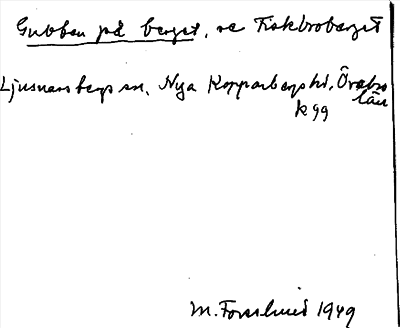 Gubben på berget, se Fiskbroberget
Ljusnarsbergs sn, Nya Kopparbergs hd, Örebro
län
k 99
M. Forslund 1949